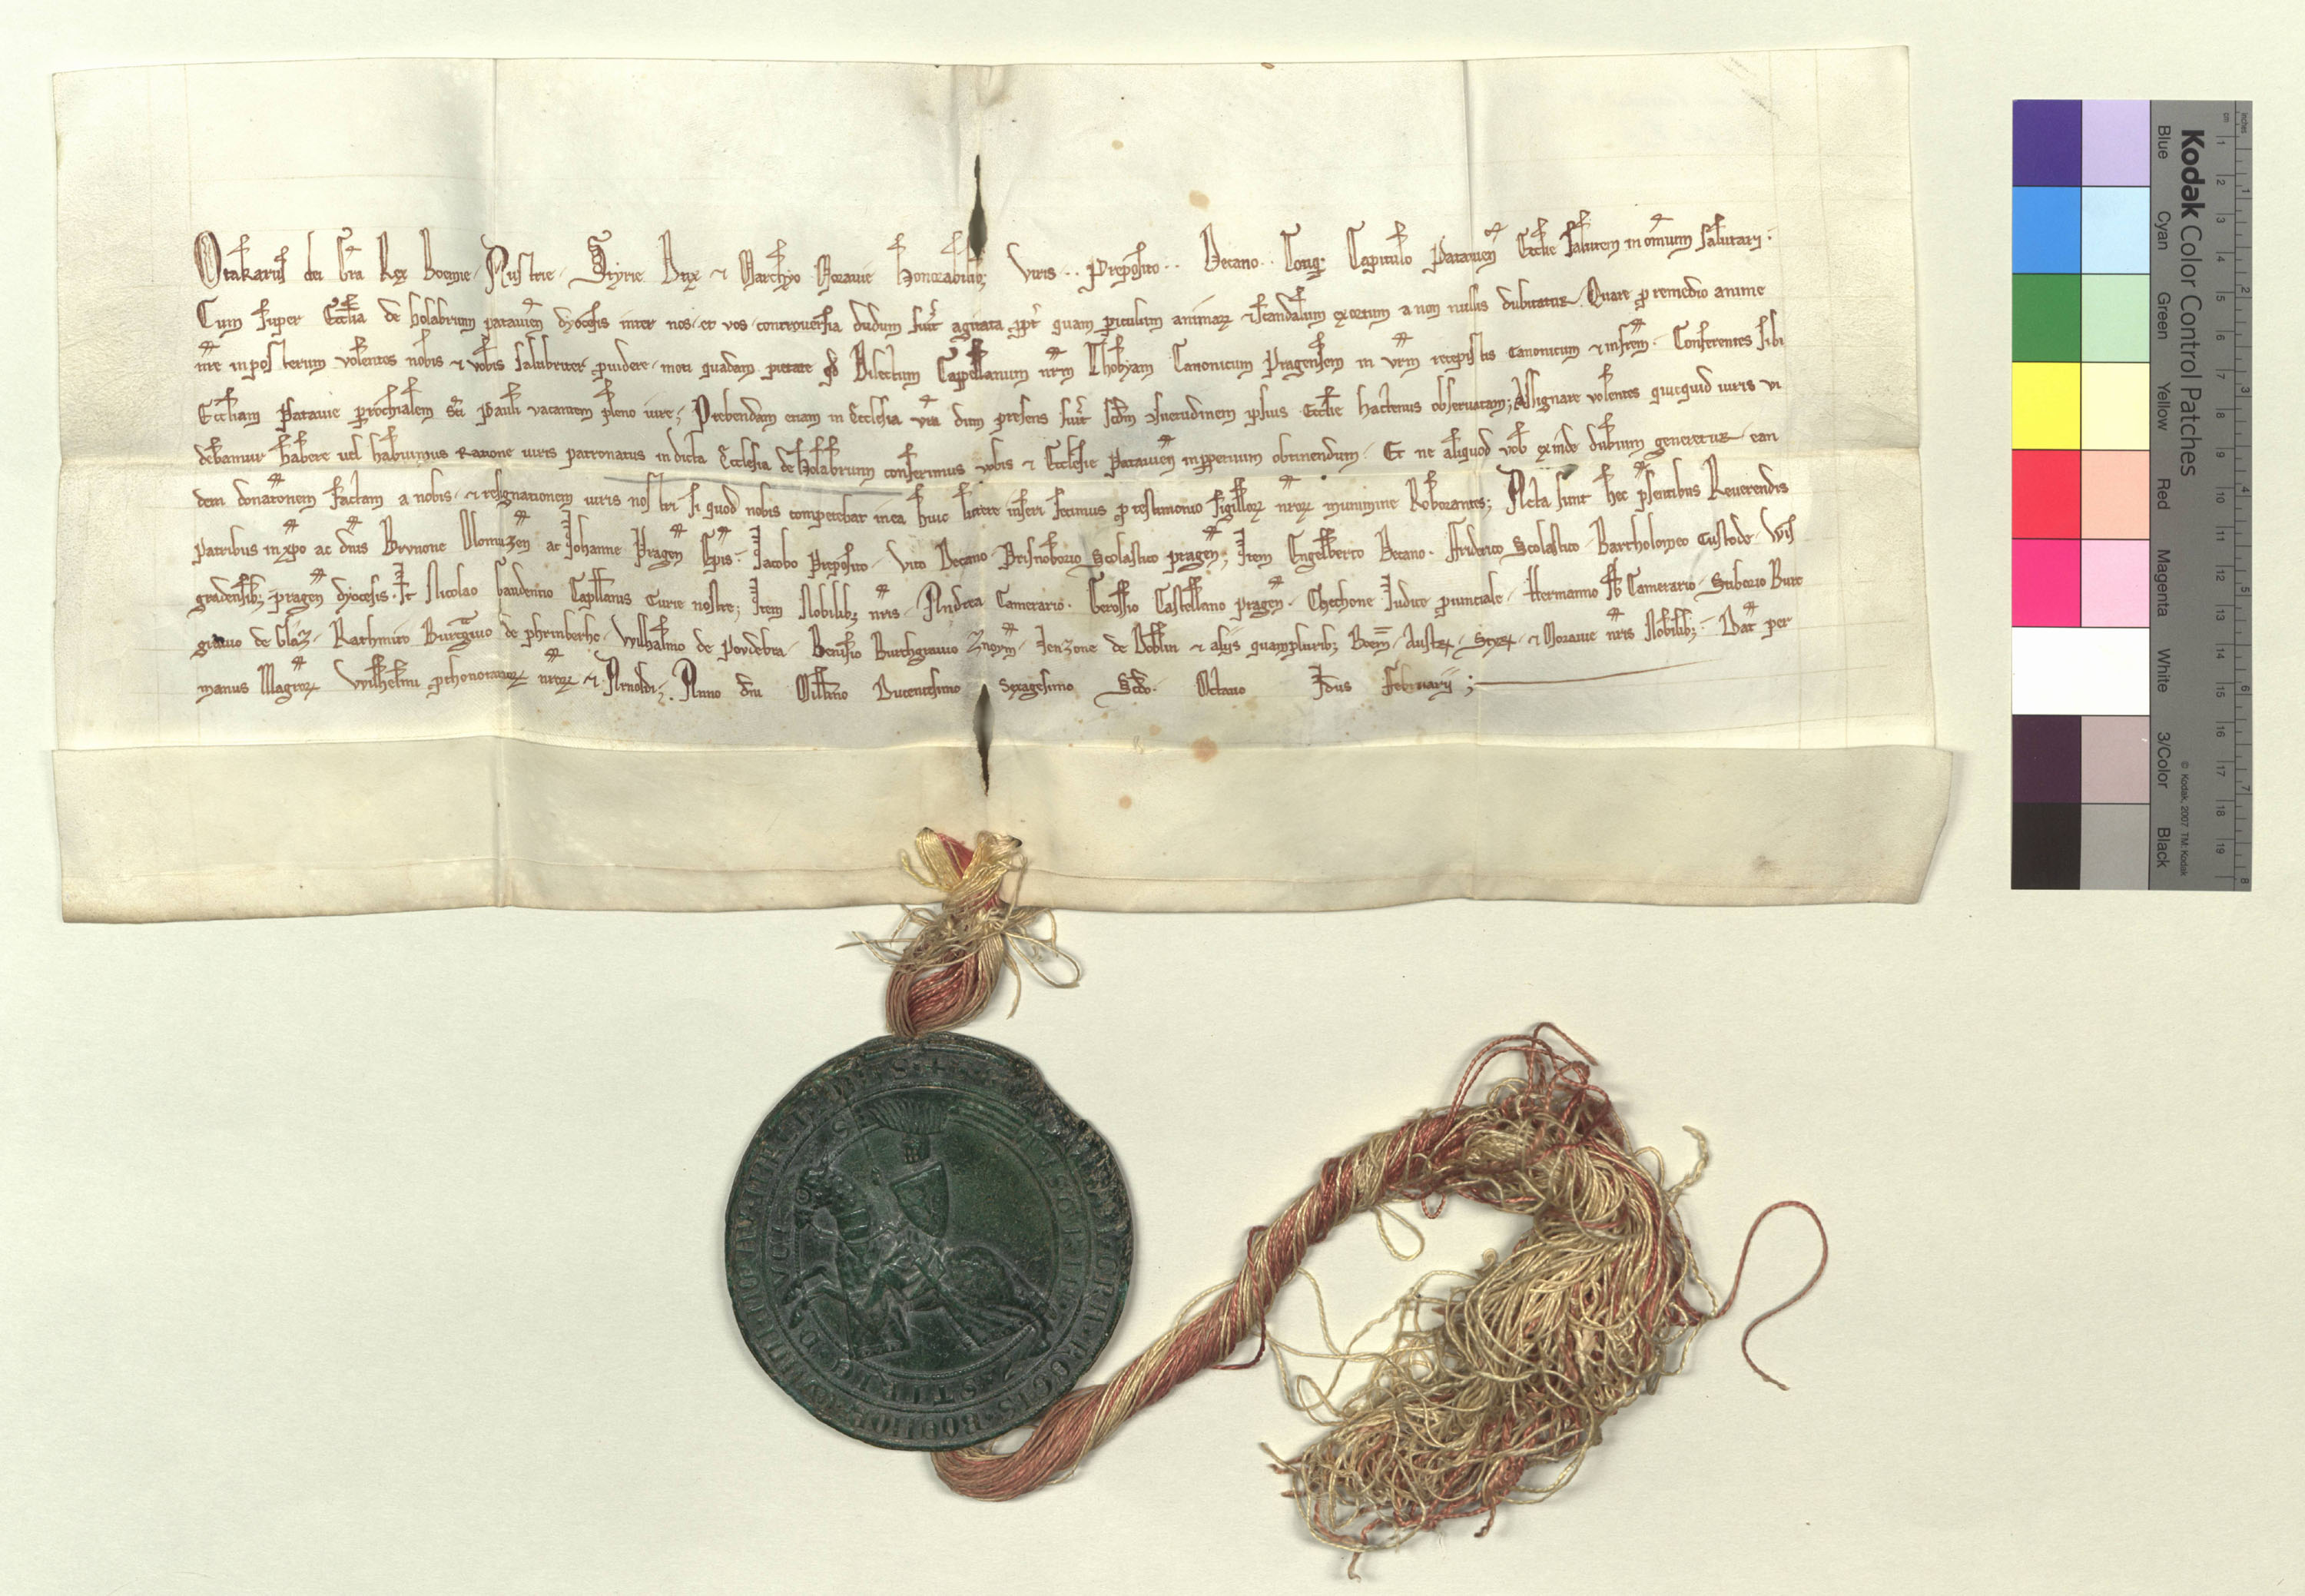 Otakarus dei gra Rex Boemie Austrie Styrie Dux ⁊ Marchyo Morauie honorabilib; viris .. preposito .. Decano .. Totiq; Capitulo Patauien Ecclie salutem in omnium salutari.
Cum super Ecclia de holabrunn patauien dyocesis inter nos et vos controuersia dudum fuit agitata ppt quam piculum animaꝝ ⁊ scandalum exortum a non nullis dubitatur. Quare pro remedio anime
nre in posterum volentes nobis ⁊ vobis salubriter prouidere moti quadam pietate qd Dilectum Capellanum nrm Thobyam Canonicum Pragensem in vrm recepistis canonicum ⁊ infrem. Conferentes sibi
Eccliam Patauie prochialem sci Pauli vacantem pleno iure; Prebendam etiam in Ecclesia vra dum presens fuit scdm ɔsuetudinem ipsius Ecclie hactenus obseruatam; Assignare volentes quicquid iuris vi
debamur habere uel habuimus ratione iuris patronatus in dicta Ecclesia de holabrunn conferimus vobis ⁊ Ecclesie Patauien in pptuum obtinendum. Et ne aliquod vob exinde dubium generetur ean
dem donatonem factam a nobis ⁊ resignationem iuris nostri si quod nobis competebat in ea huic littere inseri fecimus pro testimonio sigilloꝝ nroꝝ munimine Roborantes; Acta sunt hec psentibus Reuerendis
Patribus in xpo ac dnis Brunone Olomuzen ac Johanne Pragen Epis. Jacobo Preposito. Vito Decano Prisnoborio Scolastico pragen; Item Engelberto Decano. Friderico Scolastico. Bartholomeo Custode. Wis
gradensib; pragen dyocesis. It Nicolao Capllanis Curie nostre; Item Nobilib; nris. Andrea Camerario. Gerossio Castellano pragen. Chechone Judice prouinciale. Hermanno sb Camerario. Stiborio Burc
grauio de Glaz. Rathmiro Burcgrauio de phrinberhc. Wilhalmo de Povdebra. Benisio Burchgrauio Znoym. Jenzone de Doblin ⁊ alijs quampluribz Boem. Austꝝ. Styꝝ. ⁊ Morauie nris Nobilib;. Dat per
manus Magroꝝ Wilhelmi prthonotarioꝝ nroꝝ ⁊ Arnoldi;. Anno dni Millmo Ducentesimo sexagesimo Scdo. Octauo Idus Februarij;
Kodak Color Control Patches
Blue Cyan Green Yellow Red Magenta White 3/Color Black
© Kodak, 2007 TM: Kodak
cm 1 2 3 4 5 6 7 8 9 10 11 12 13 14 15 16 17 18 19
inches 1 2 3 4 5 6 7 8